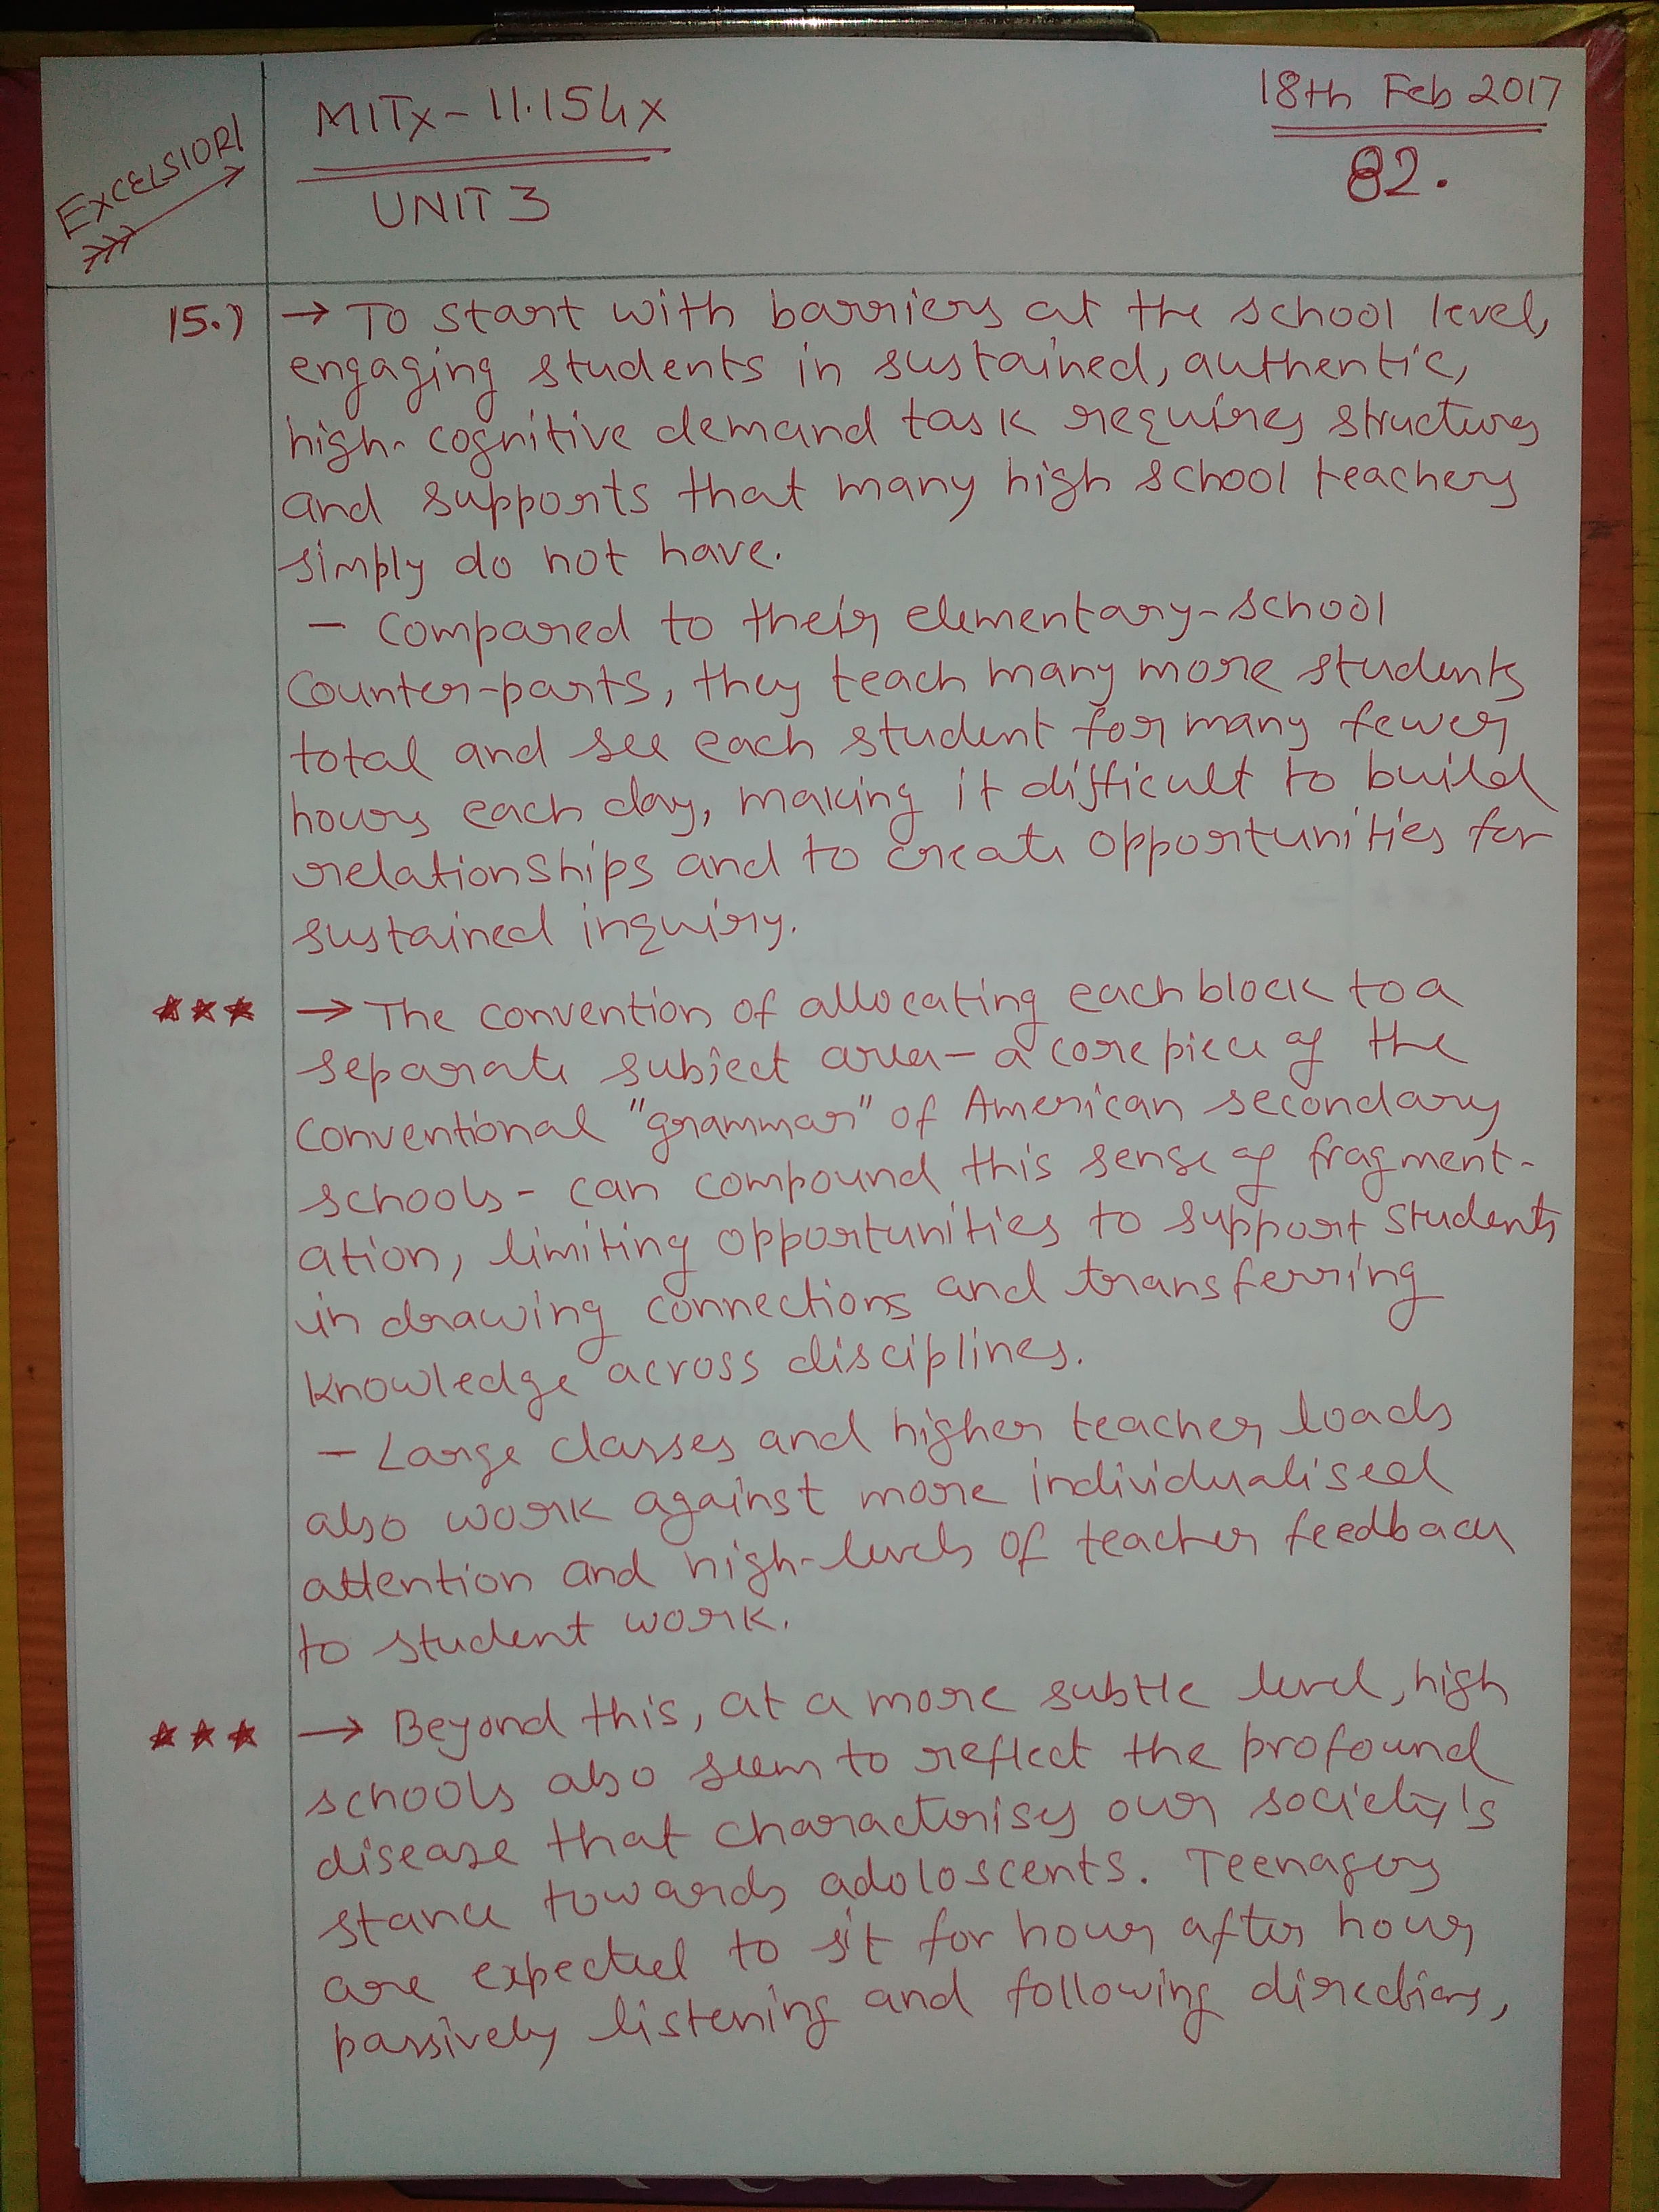 EXCELSIOR!
MITx - 11.154x
UNIT 3
18th Feb 2017
82.
15.) → To start with barriers at the school level,
engaging students in sustained, authentic,
high-cognitive demand task requires structures
and supports that many high school teachers
simply do not have.
- Compared to their elementary-school
counter-parts, they teach many more students
total and see each student for many fewer
hours each day, making it difficult to build
relationships and to create opportunities for
sustained inquiry.
★★★ → The convention of allocating each block to a
separate subject area - a core piece of the
conventional "grammar" of American secondary
schools - can compound this sense of fragment-
ation, limiting opportunities to support students
in drawing connections and transferring
knowledge across disciplines.
- Large classes and higher teacher loads
also work against more individualised
attention and high-levels of teacher feedback
to student work.
★★★ → Beyond this, at a more subtle level, high
schools also seem to reflect the profound
disease that characterises our society's
stance towards adoloscents. Teenagers
are expected to sit for hour after hour
passively listening and following directions,